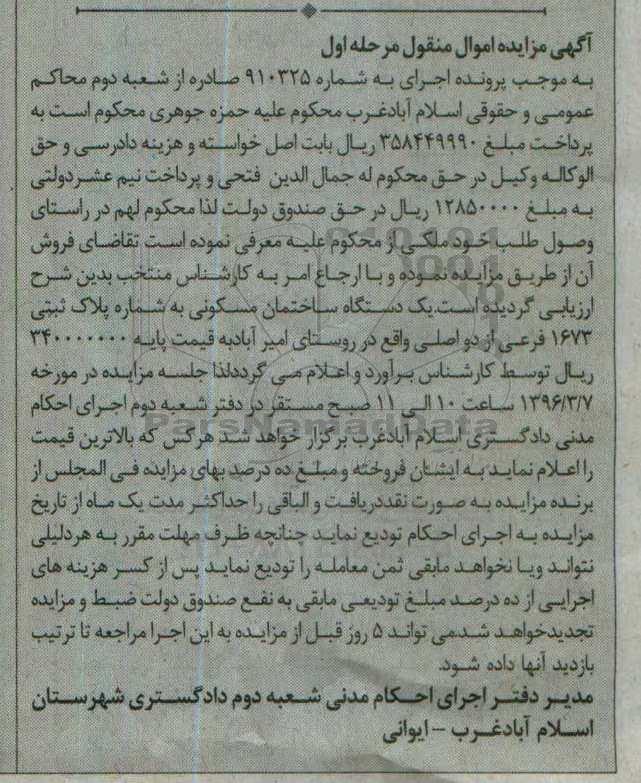 آگهی مزایده اموال منقول مرحله اول
به موجب پرونده اجرای به شماره ۹۱۰۳۲۵ صادره از شعبه دوم محاکم
عمومی و حقوقی اسلام آبادغرب محکوم علیه حمزه جوهری محکوم است به
پرداخت مبلغ ۳۵۸۴۴۹۹۹۰ ریال بابت اصل خواسته و هزینه دادرسی و حق
الوکاله وکیل در حق محکوم له جمال الدین فتحی و پرداخت نیم عشردولتی
به مبلغ ۱۲۸۵۰۰۰۰ ریال در حق صندوق دولت لذا محکوم لهم در راستای
وصول طلب خود ملکی از محکوم علیه معرفی نموده است تقاضای فروش
آن از طریق مزایده نموده و با ارجاع امر به کارشناس منتخب بدین شرح
ارزیابی گردیده است.یک دستگاه ساختمان مسکونی به شماره پلاک ثبتی
۱۶۷۳ فرعی از دو اصلی واقع در روستای امیر آبادبه قیمت پایه ۳۴۰۰۰۰۰۰۰
ریال توسط کارشناس برآورد و اعلام می گرددلذا جلسه مزایده در مورخه
۱۳۹۶/۳/۷ ساعت ۱۰ الی ۱۱ صبح مستقر در دفتر شعبه دوم اجرای احکام
مدنی دادگستری اسلام آبادغرب برگزار خواهد شد هرکس که بالاترین قیمت
را اعلام نماید به ایشان فروخته و مبلغ ده درصد بهای مزایده فی المجلس از
برنده مزایده به صورت نقددریافت و الباقی را حداکثر مدت یک ماه از تاریخ
مزایده به اجرای احکام تودیع نماید چنانچه ظرف مهلت مقرر به هردلیلی
نتواند ویا نخواهد مابقی ثمن معامله را تودیع نماید پس از کسر هزینه های
اجرایی از ده درصد مبلغ تودیعی مابقی به نفع صندوق دولت ضبط و مزایده
تجدیدخواهد شد.می تواند ۵ روز قبل از مزایده به این اجرا مراجعه تا ترتیب
بازدید آنها داده شود.
مدیر دفتر اجرای احکام مدنی شعبه دوم دادگستری شهرستان
اسلام آبادغرب – ایوانی
ParsNamadData